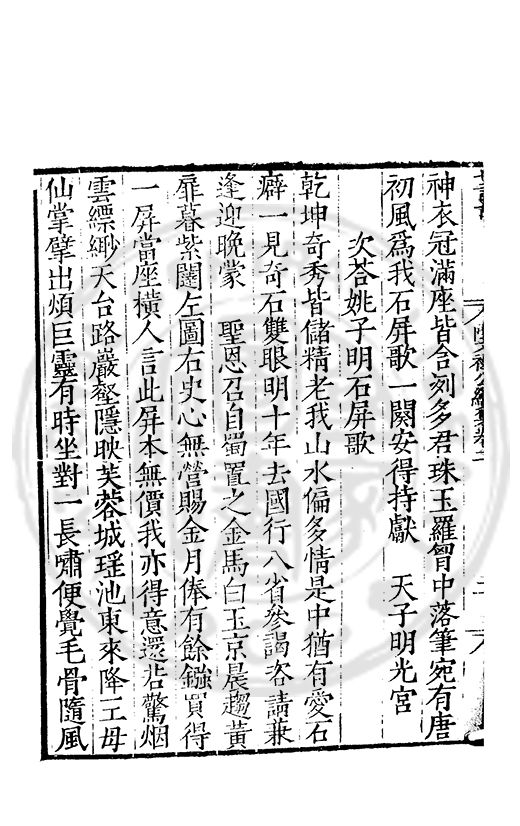 神衣冠滿座皆含刻多君珠玉羅胷中落筆宛有唐
初風爲我石屏歌一闋安得持獻　天子明光宮
次荅姚子明石屏歌
乾坤奇秀皆儲精老我山水偏多情是中猶有愛石
癖一見奇石雙眼明十年去國行八省參謁咨請兼
逢迎晚蒙　聖恩召自蜀置之金馬白玉京晨趨黃
扉暮紫闥左圖右史心無營賜金月俸有餘鏹買得
一屏當座橫人言此屏本無價我亦得意還若驚烟
雲縹緲天台路巖壑隱映芙蓉城瑶池東來降王母
仙掌擘出煩巨靈有時坐對一長嘯便覺毛骨隨風